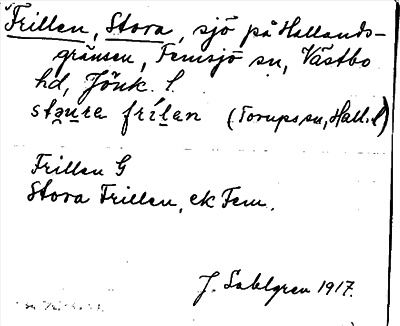 Frillen, Stora, sjö på Hallands-
gränsen, Femsjö sn, Västbo
hd, Jönk. l.
stau̯re frilen (Torups sn, Hall. l)
Frillen G
Stora Frillen, ek Fem.
J. Sahlgren 1917.